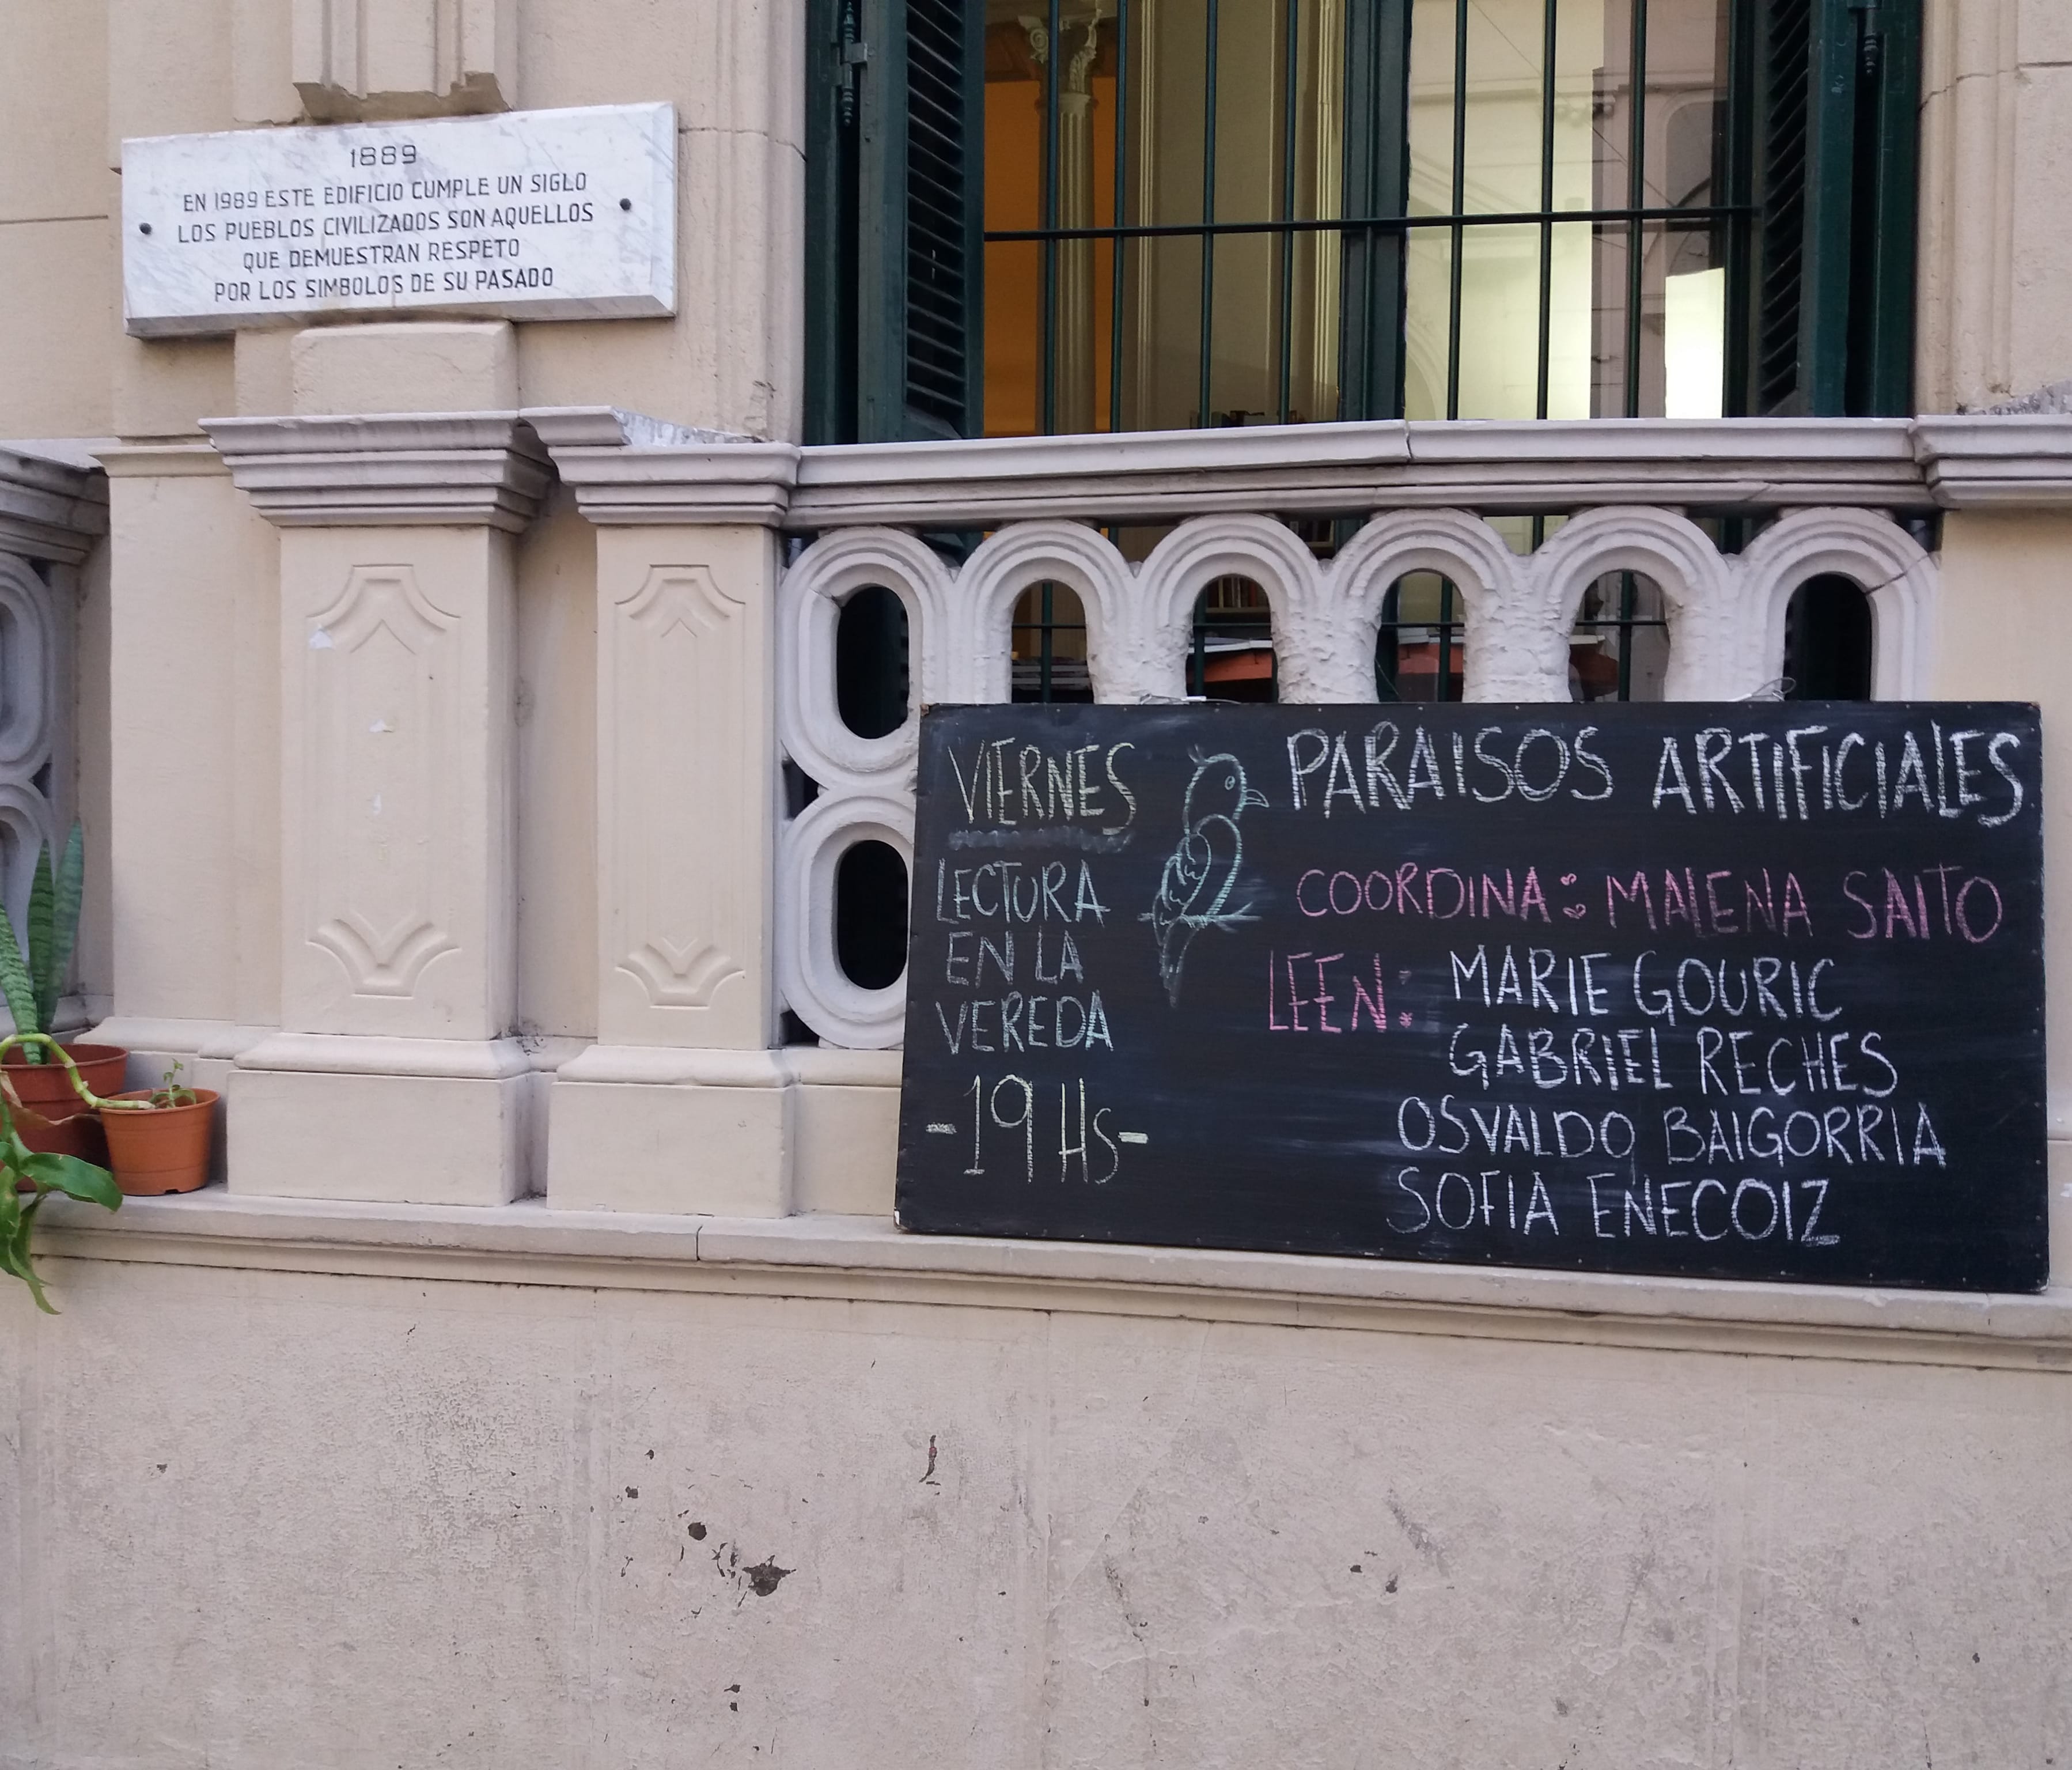 1889
EN 1989 ESTE EDIFICIO CUMPLE UN SIGLO
LOS PUEBLOS CIVILIZADOS SON AQUELLOS
QUE DEMUESTRAN RESPETO
POR LOS SIMBOLOS DE SU PASADO
VIERNES
LECTURA
EN LA
VEREDA
-19 Hs-
PARAISOS ARTIFICIALES
COORDINA: MALENA SAITO
LEEN: MARIE GOURIC
GABRIEL RECHES
OSVALDO BAIGORRIA
SOFIA ENECOIZ